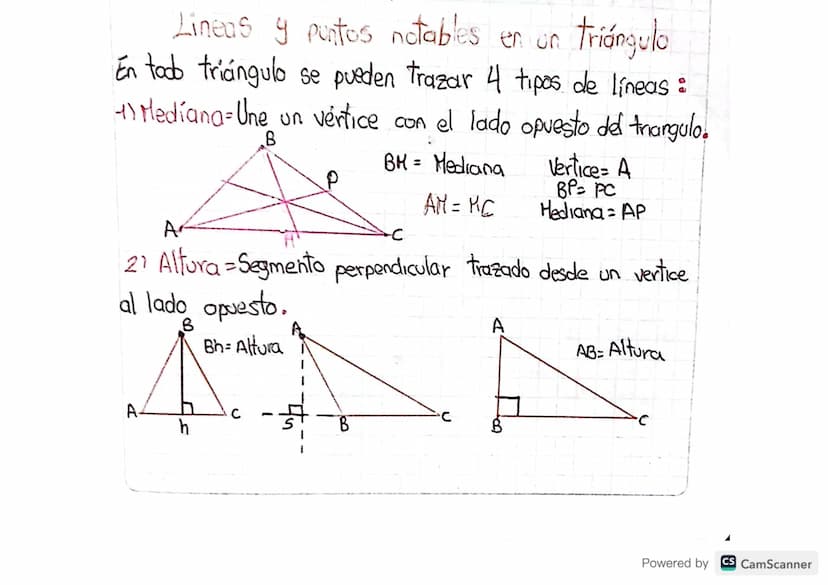 Lineas y puntos notables en un triángulo
En todo triángulo se pueden trazar 4 tipos de líneas:
1) Mediana=Une un vértice con el lado opuesto del triangulo.
B
BM = Mediana
Vertice= A
P
BP= PC
AM = MC
Mediana=AP
A
C
M
2) Altura=Segmento perpendicular trazado desde un vertice
al lado opuesto.
B
A
A
Bh=Altura
AB=Altura
A
C
S
B
C
h
B
C
Powered by CS CamScanner